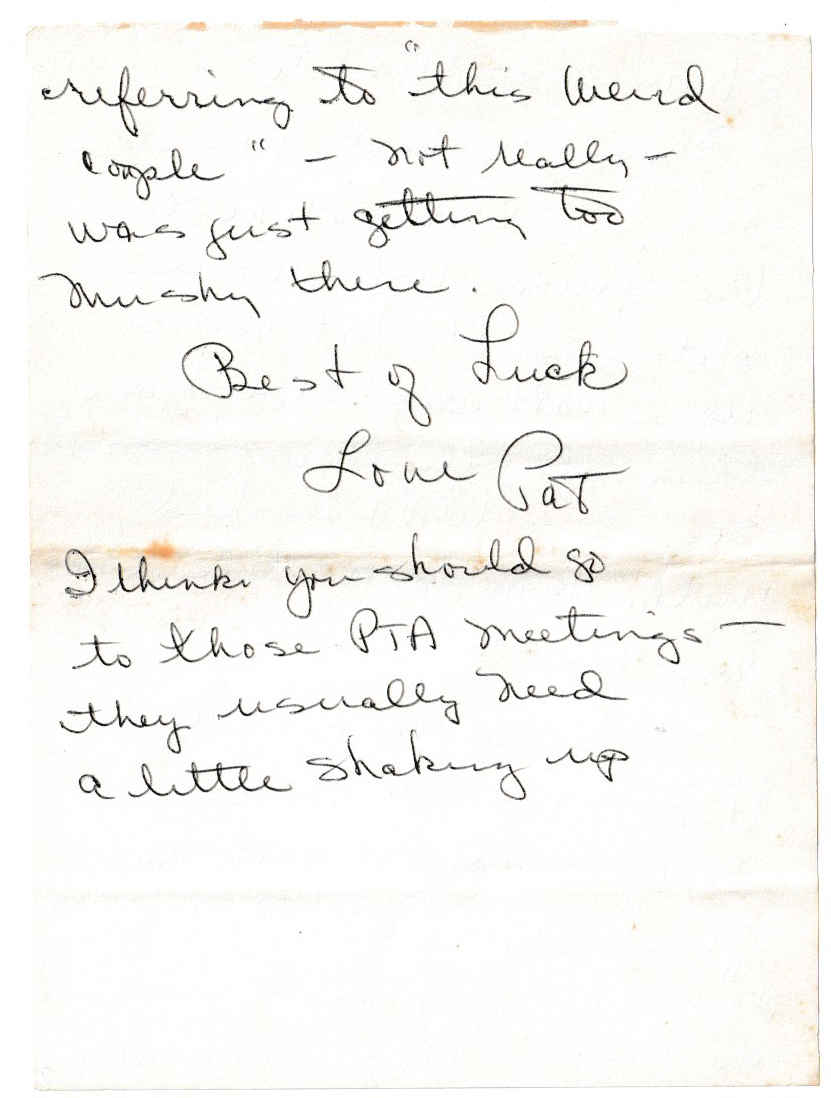 referring to "this weird
couple" – not really –
was just getting too
mushy there.
Best of Luck
Love Pat
I think you should go
to those PTA meetings –
they usually need
a little shaking up